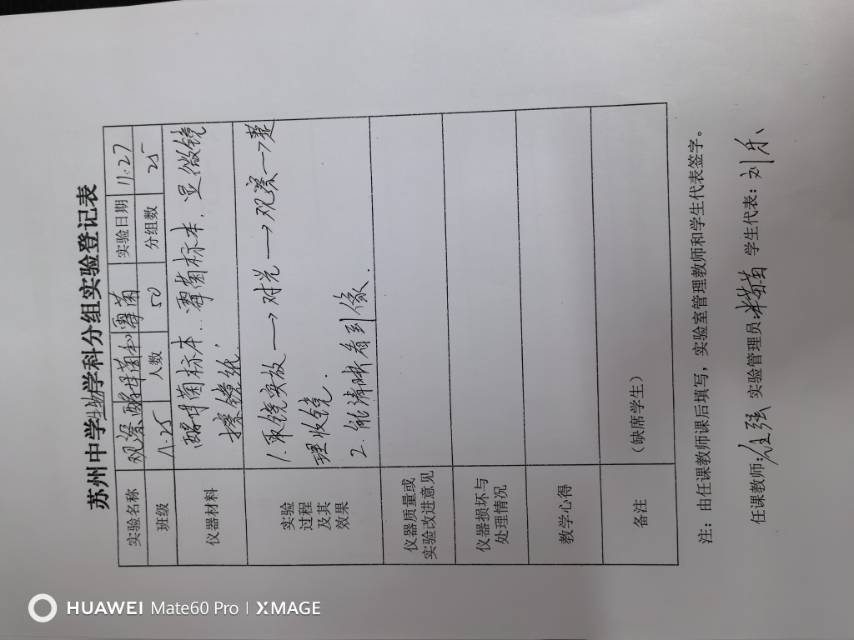 苏州中学生物学科分组实验登记表
实验名称 观察酵母菌和霉菌 实验日期 11.27
班级 1.25 人数 50 分组数 25
仪器材料 酵母菌标本、霉菌标本、显微镜
擦镜纸.
实验
过程
及其
效果
1. 取镜安放→对光→观察→整
理收镜.
2. 能清晰看到像.
仪器质量或
实验改进意见
仪器损坏与
处理情况
教学心得
备注 (缺席学生)
注：由任课教师课后填写，实验室管理教师和学生代表签字。
任课教师: 实验管理员: 学生代表: 刘乐
HUAWEI Mate60 Pro | XMAGE